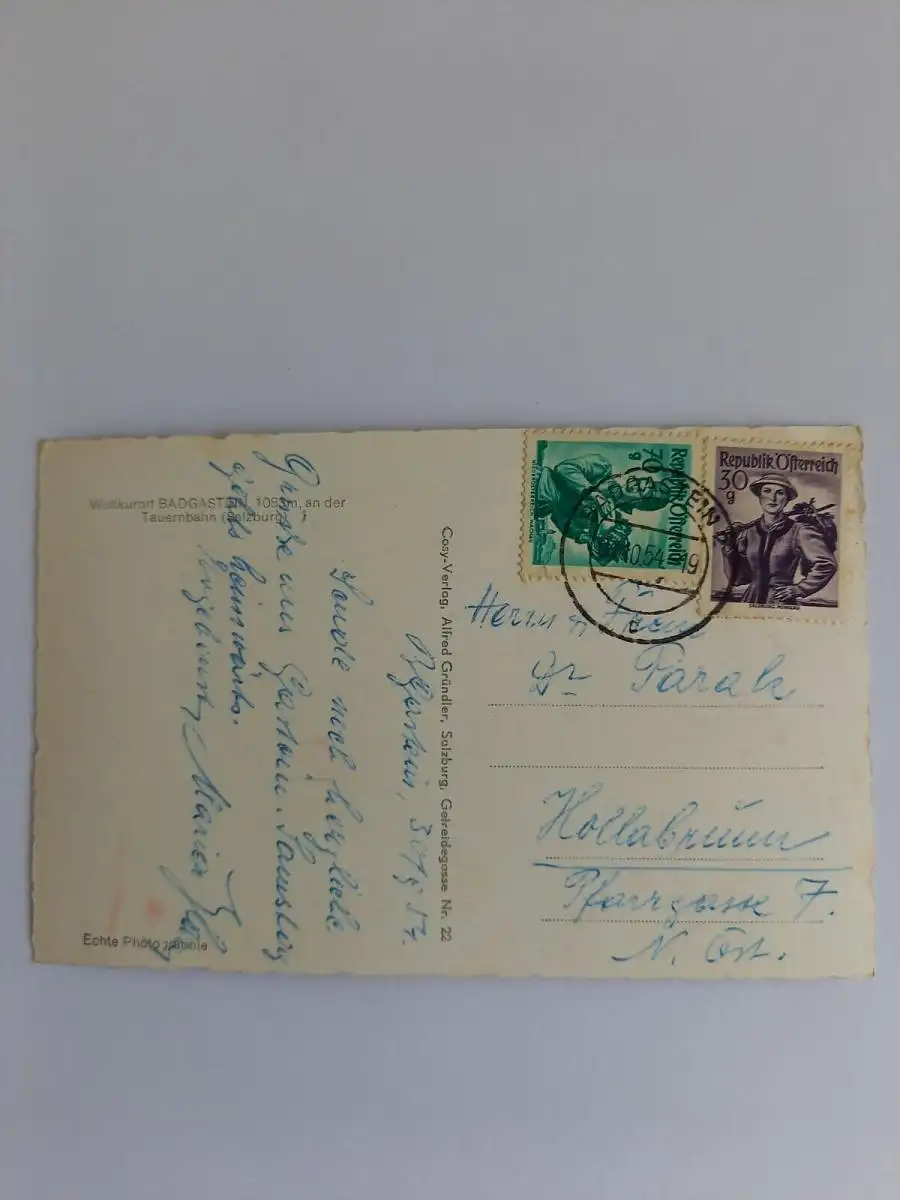 Weltkurort BADGASTEIN, 1083 m, an der
Tauernbahn (Salzburg)
Bgastein, 3 Okt. 54.
Sende noch herzliche
Grüße aus Gastein. Samstag
geht's heimwärts.
Marier
Echte Photographie
Cosy-Verlag, Alfred Gründler, Salzburg, Getreidegasse Nr. 22
Republik Österreich
70 g
Republik Österreich
30 g
BADGASTEIN
10.54-19
c
Herrn u. Frau
Dr Parak
Hollabrunn
Pfarrgasse 7.
N. Öst.